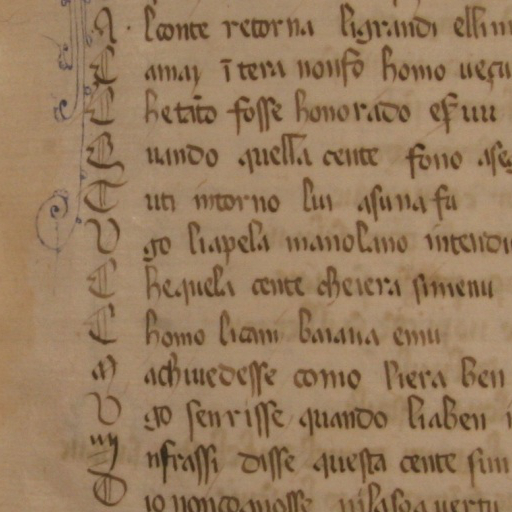 A l conte retorna li grandi elli m
C amai ī tera non fo homo uequ
C he tāto fosse honorado e ꝑ uiu
Q uando quella cente sono ase
T uti intorno lui asunafu
V go li apela mano lano intendi
C he quela cente che iera si menu
C homo li cani baiaua emu
M a chi uedesse como liera ben
V go sen risse quando lia ben
nfrassi disse questa cente sun
S io non cognosse